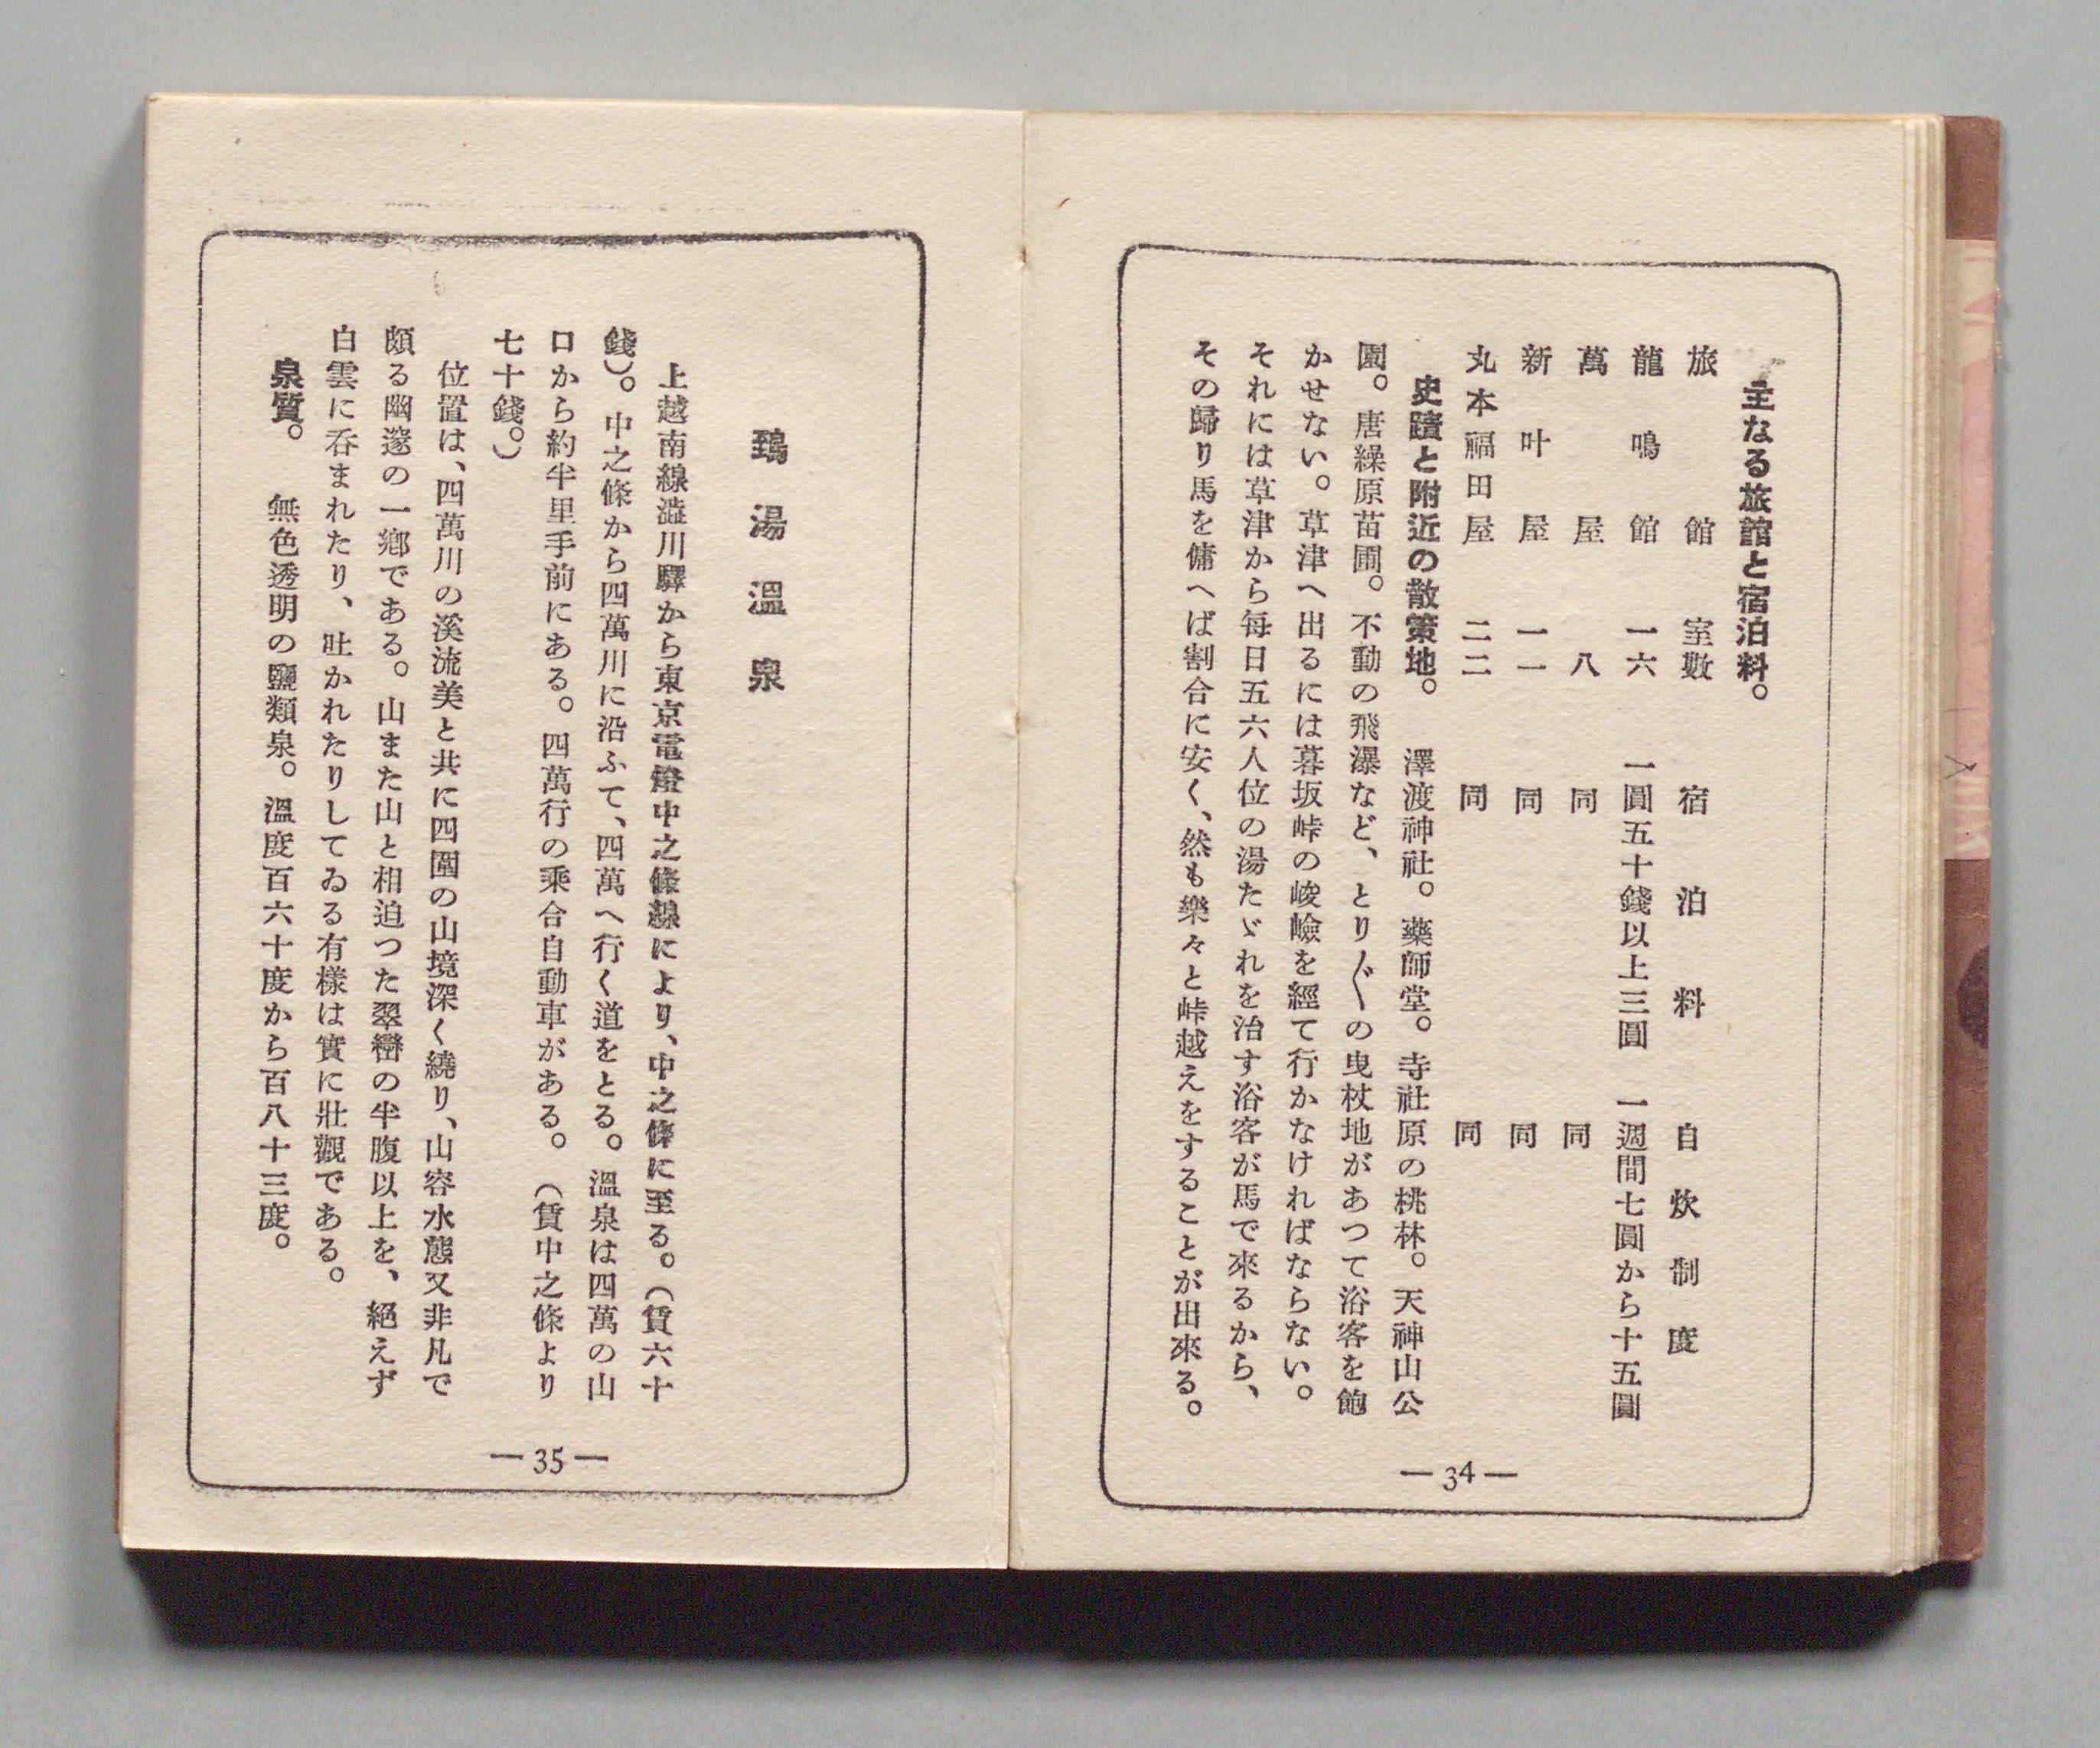 主なる旅館と宿泊料。
旅館　室數　宿泊料　自炊制度
龍鳴館　一六　一圓五十錢以上三圓　一週間七圓から十五圓
萬屋　八　同　同
新叶屋　一一　同　同
丸本福田屋　二二　同　同
史蹟と附近の散策地。　澤渡神社。藥師堂。寺社原の桃林。天神山公
園。唐繰原苗圃。不動の飛瀑など、とり〲の曳杖地があつて浴客を飽
かせない。草津へ出るには暮坂峠の峻嶮を經て行かなければならない。
それには草津から毎日五六人位の湯たゞれを治す浴客が馬で來るから、
その歸り馬を傭へば割合に安く、然も樂々と峠越えをすることが出來る。
—34—
鵄湯溫泉
上越南線澁川驛から東京電燈中之條線により、中之條に至る。（賃六十
錢）。中之條から四萬川に沿ふて、四萬へ行く道をとる。溫泉は四萬の山
口から約半里手前にある。四萬行の乘合自動車がある。（賃中之條より
七十錢。）
位置は、四萬川の溪流美と共に四圍の山境深く繞り、山容水態又非凡で
頗る幽邃の一鄕である。山また山と相迫つた翠巒の半腹以上を、絕えず
白雲に呑まれたり、吐かれたりしてゐる有樣は實に壯觀である。
泉質。　無色透明の鹽類泉。溫度百六十度から百八十三度。
—35—